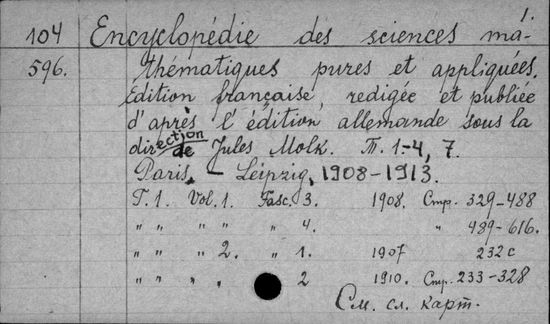 1.
104 Encyclopédie des sciences ma-
596. thématiques pures et appliquées.
Edition française, redigée et publiée
d'après l'édition allemande sous la
direction de Jules Molk. Т. 1-4, 7.
Paris, - Leipzig, 1908-1913.
T. 1. Vol. 1. Fasc. 3. 1908. Стр. 329-488
" " " " " 4. " 489-616.
" " " 2. " 1. 1907 232 с
" " " " " 2 1910. Стр. 233-328
См. сл. карт.